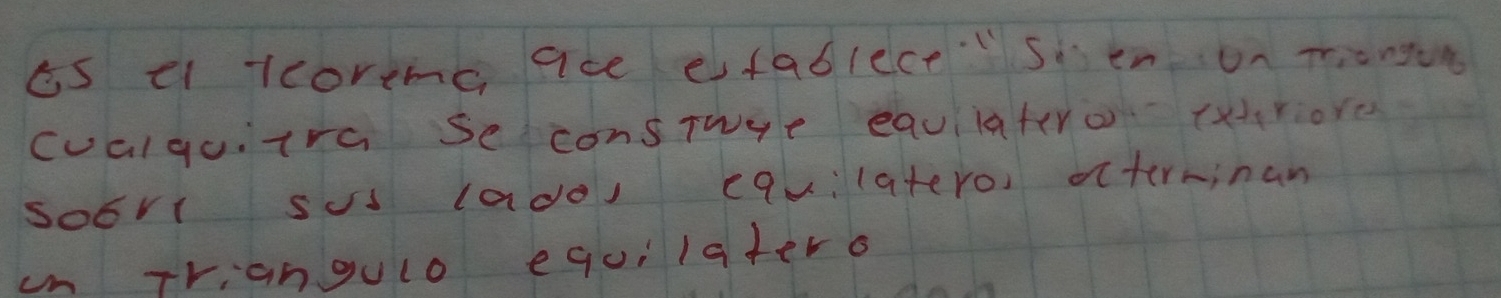 Es el teorema que establece: "Si en un triangulo
cualquiera se construye equilateros exteriores
sobre sus lados equilateros determinan
un triangulo equilatero